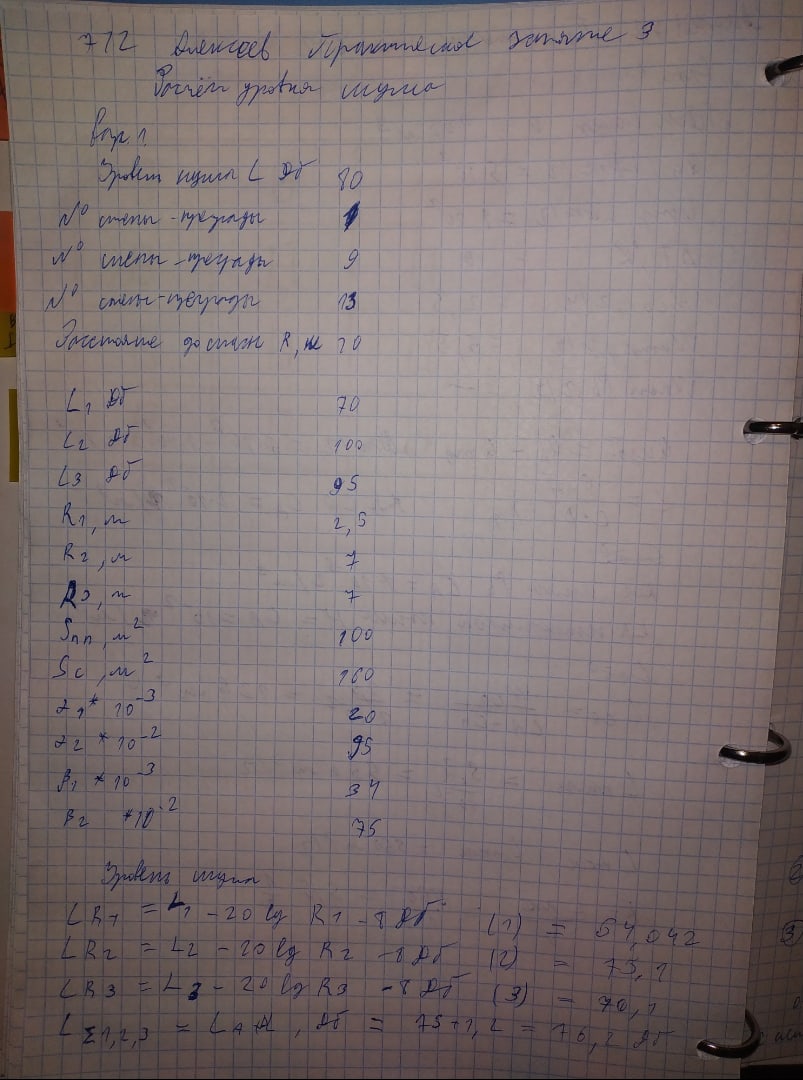 712 Алексеев Практическое занятие 3
Расчёт уровня шума
Вар. 1.
Уровень шума L Дб 80
N° стены-преграды 1
N° стены-преграды 9
N° стены-преграды 13
Расстояние до стены R, м 10
L1 Дб 70
L2 Дб 100
L3 Дб 95
R1, м 2,5
R2, м 7
R3, м 7
Sпп, м² 100
Sс, м² 160
α1 * 10⁻³ 20
α2 * 10⁻² 95
β1 * 10⁻³ 34
β2 * 10⁻² 75
Уровень шума
LR1 = L1 - 20 lg R1 - 8 Дб (1) = 54,042
LR2 = L2 - 20 lg R2 - 8 Дб (2) = 75,1
LR3 = L3 - 20 lg R3 - 8 Дб (3) = 70,1
LΣ1,2,3 = LA+Δ, Дб = 75+1,2 = 76,2 Дб